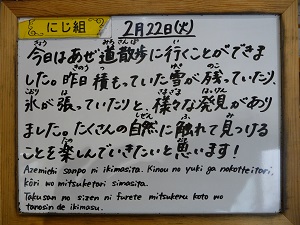 にじ組
2月22日(火)
今日はあぜ道散歩に行くことができま
した。昨日積もっていた雪が残っていたり、
氷が張っていたりと、様々な発見があり
ました。たくさんの自然に触れて見つける
ことを楽しんでいきたいと思います！
Azemichi sanpo ni ikimasita. Kinou no yuki ga nokotteitari,
kôri wo mitsuketari simasita.
Takusan no sizen ni furete mitsukeru koto wo
tanosin de ikimasu.